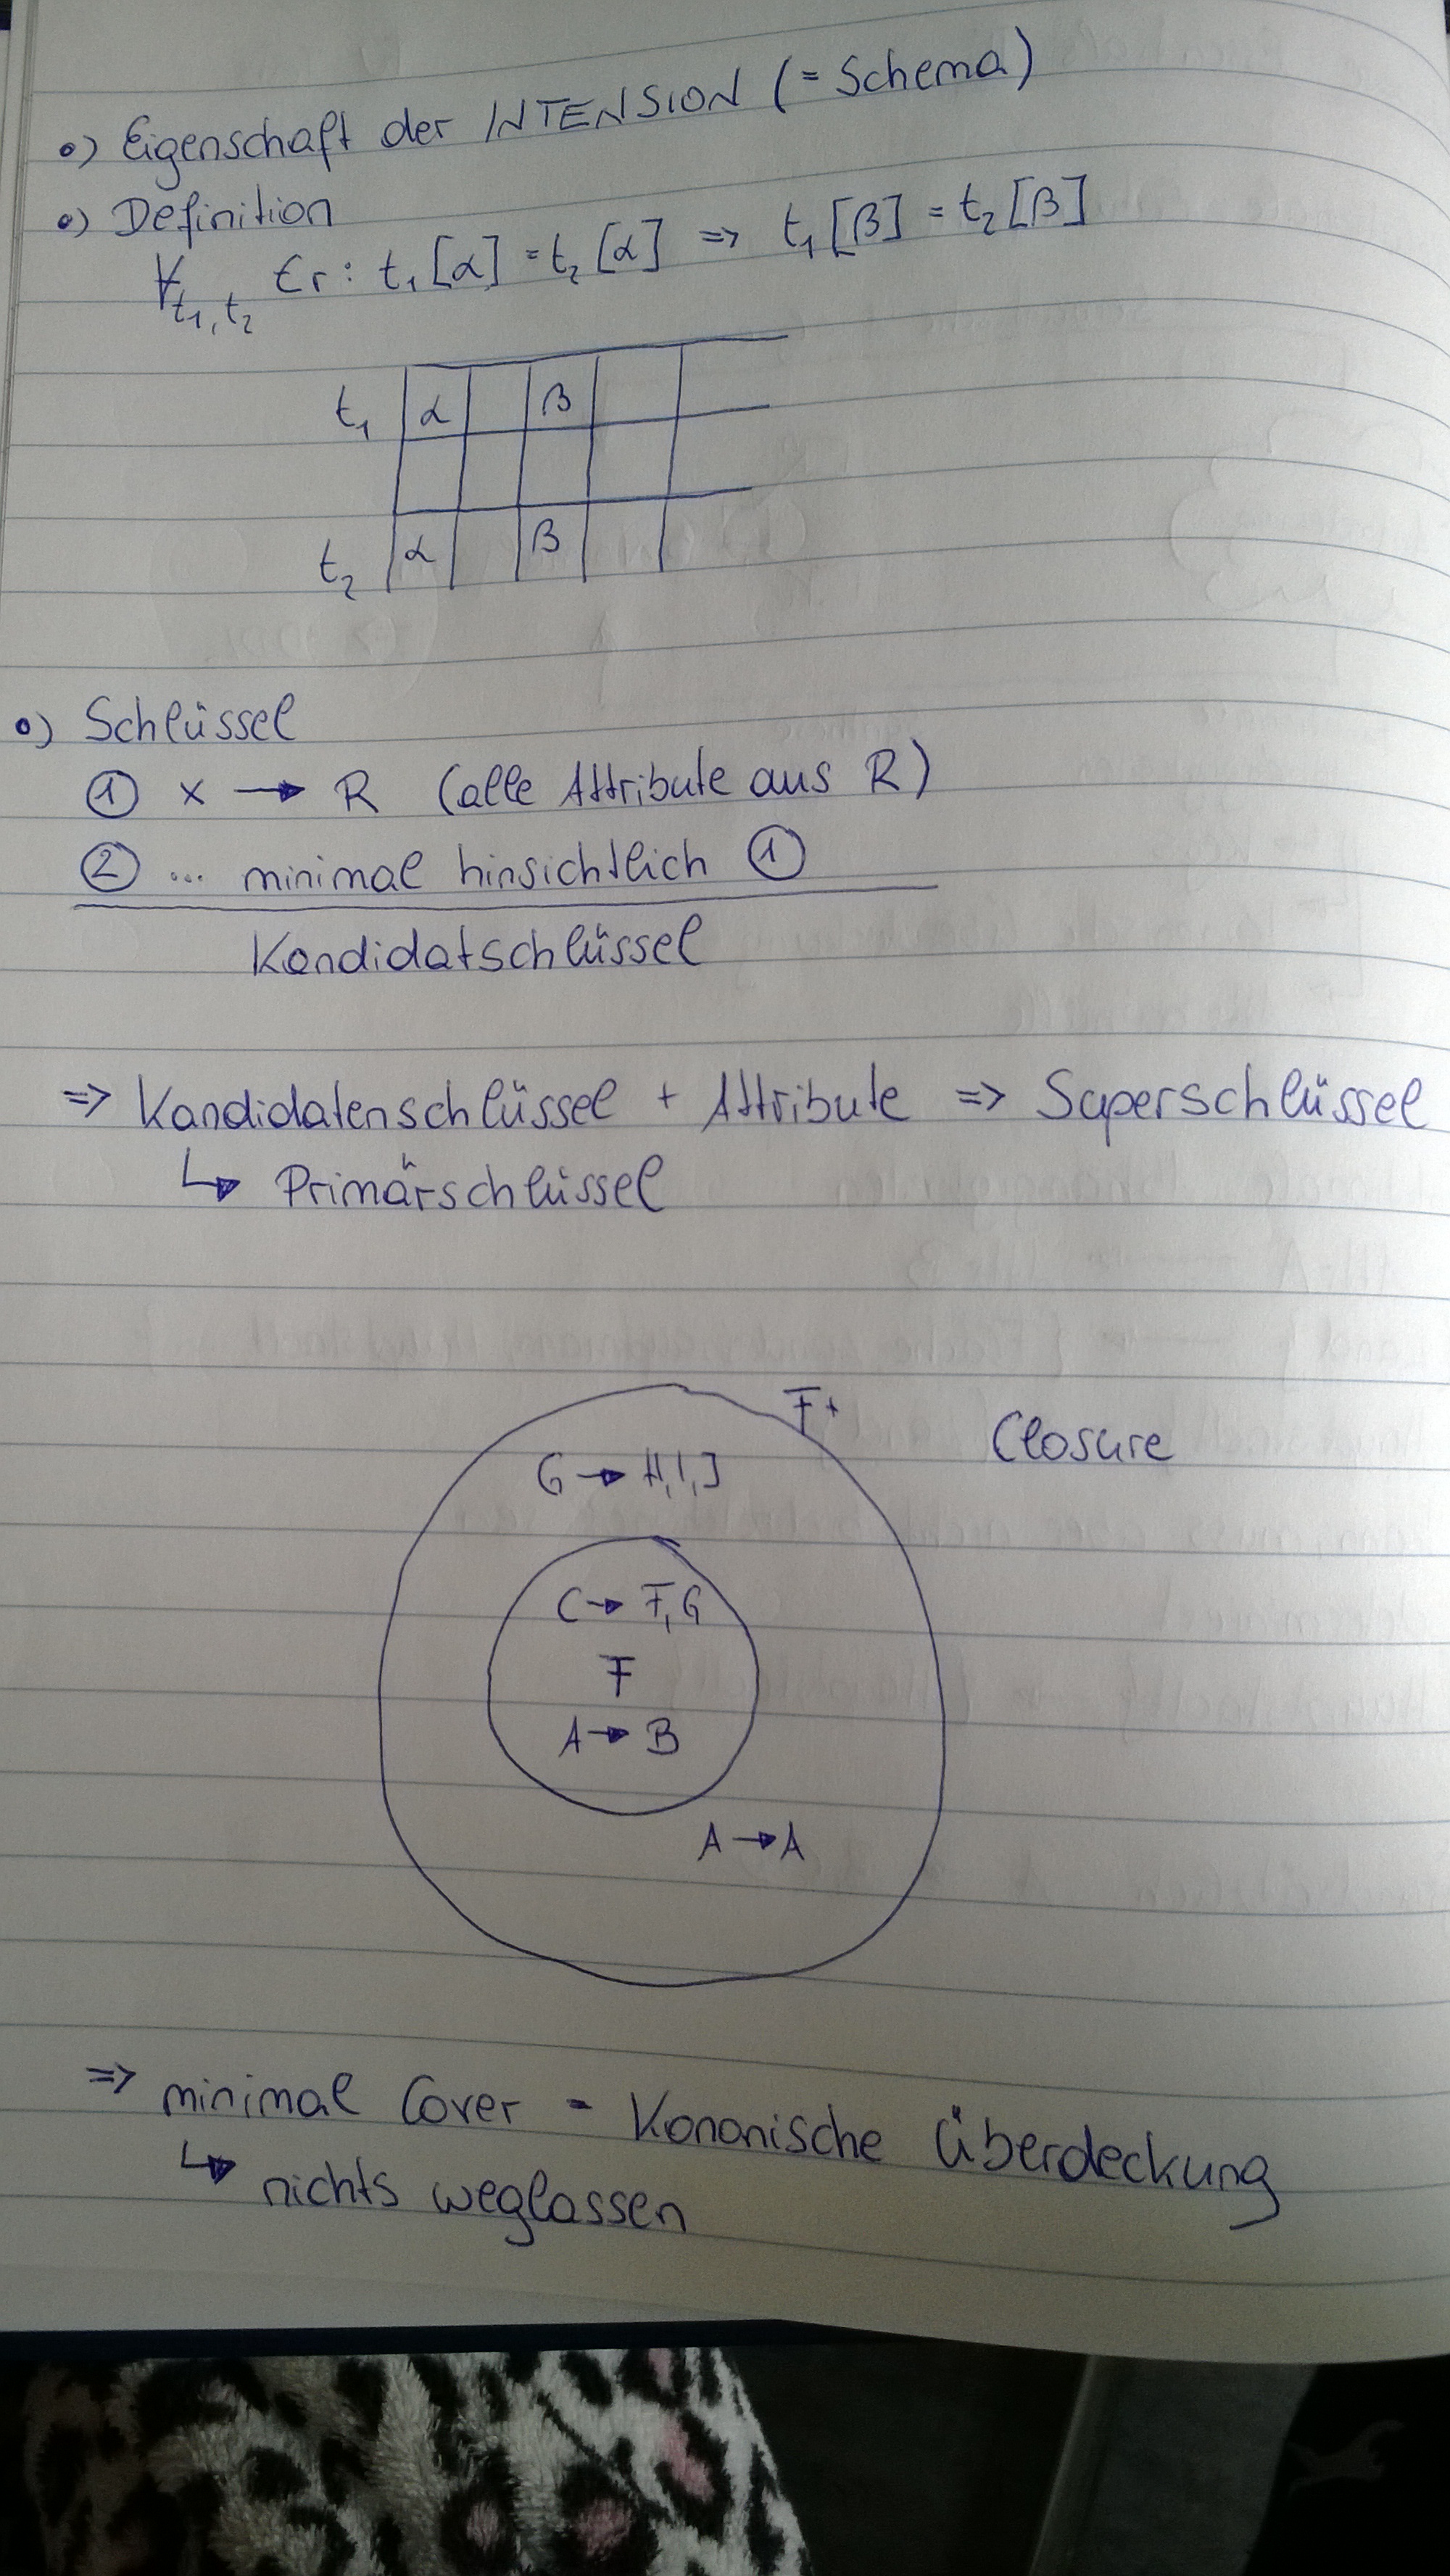 •) Eigenschaft der INTENSION (= Schema)
•) Definition
∀t₁,t₂ ∈ r : t₁[α] = t₂[α] => t₁[β] = t₂[β]
t₁ α β
t₂ α β
•) Schlüssel
① x → R (alle Attribute aus R)
② ... minimal hinsichtlich ①
Kandidatschlüssel
=> Kandidatenschlüssel + Attribute => Superschlüssel
↳ Primärschlüssel
F+
Closure
G → H, I, J
C → F, G
F
A → B
A → A
=> minimal Cover = Kanonische Überdeckung
↳ nichts weglassen